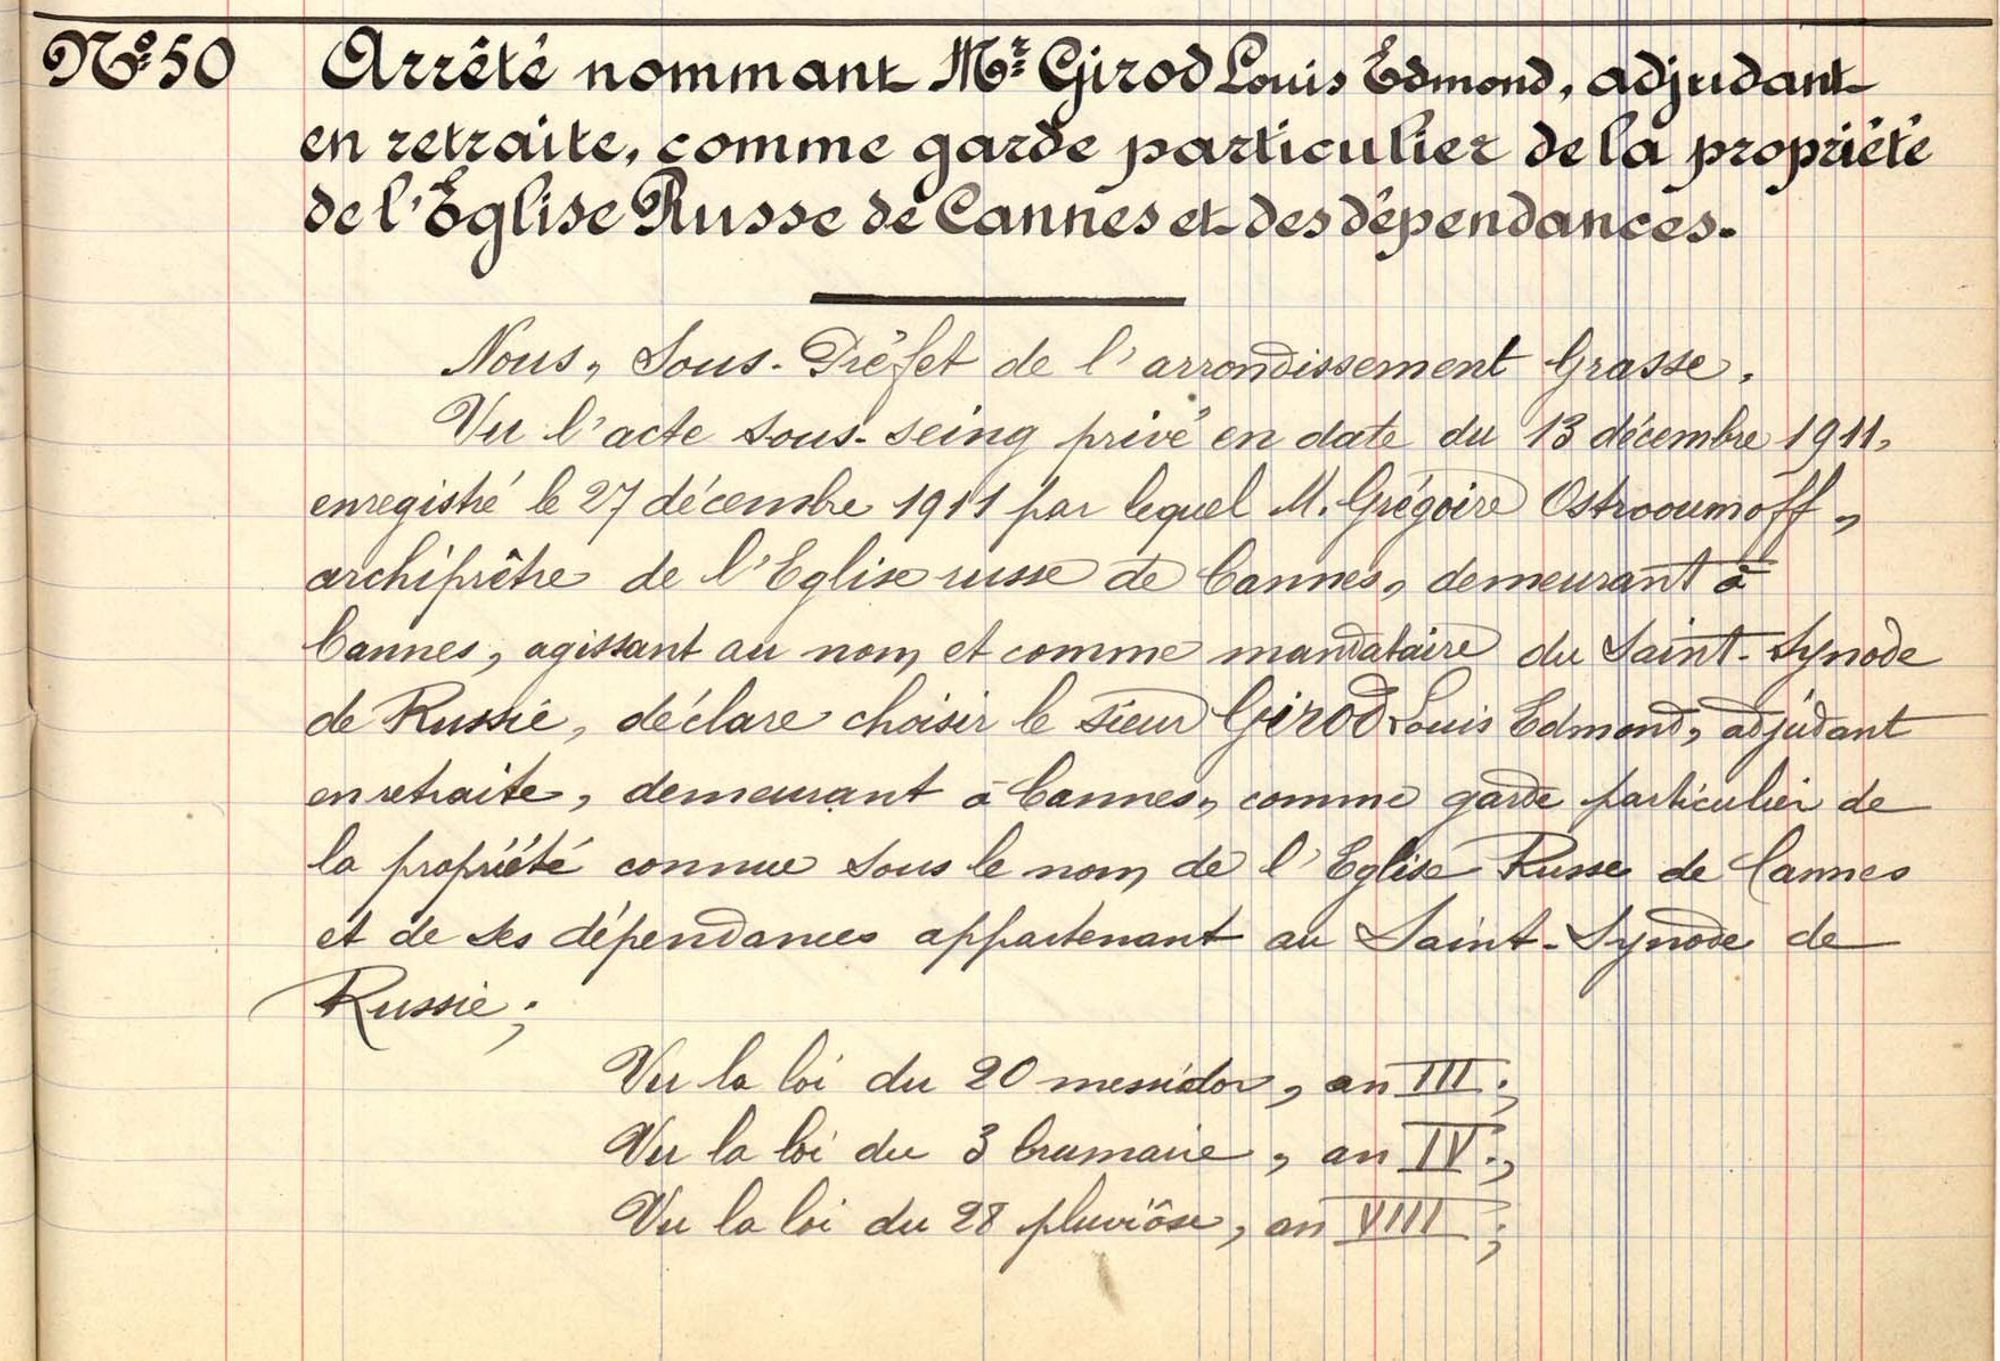 Nº 50 Arrêté nommant Mr Girod Louis Edmond, adjudant
en retraite, comme garde particulier de la propriété
de l'Eglise Russe de Cannes et des dépendances.
Nous, Sous-Préfet de l'arrondissement Grasse,
Vu l'acte sous-seing privé en date du 13 décembre 1911,
enregistré le 27 décembre 1911 par lequel M. Grégoire Ostrooumoff,
archiprêtre de l'Eglise russe de Cannes, demeurant à
Cannes, agissant au nom et comme mandataire du Saint-Synode
de Russie, déclare choisir le sieur Girod Louis Edmond, adjudant
en retraite, demeurant à Cannes, comme garde particulier de
la propriété connue sous le nom de l'Eglise Russe de Cannes
et de ses dépendances appartenant au Saint-Synode de
Russie;
Vu la loi du 20 messidor, an III;
Vu la loi du 3 brumaire, an IV;
Vu la loi du 28 pluviôse, an VIII;